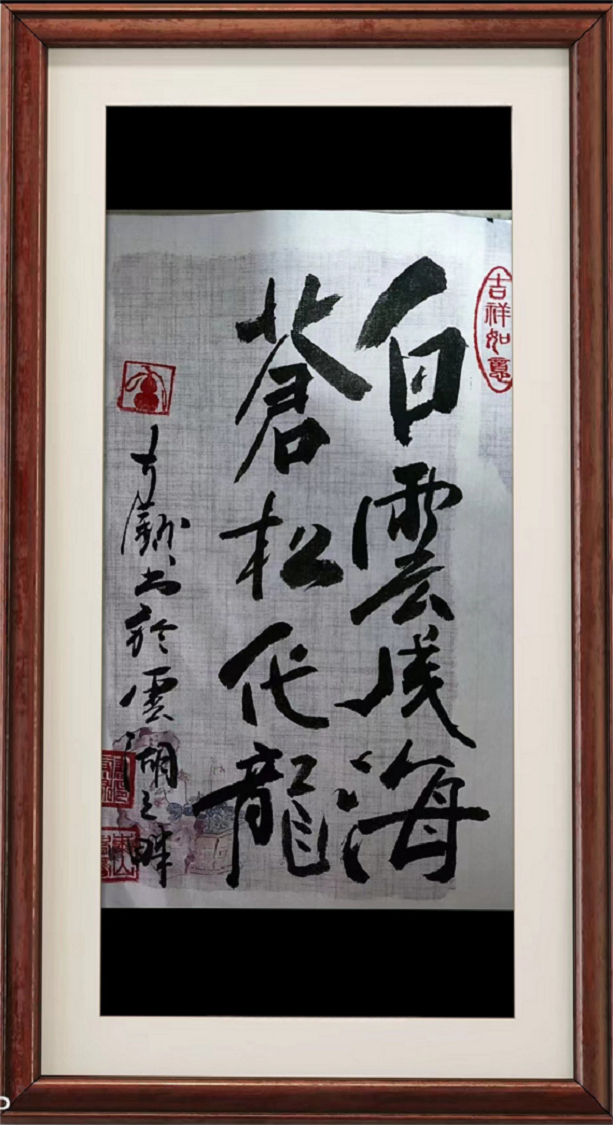 吉祥如意
白雲成海
蒼松化龍
书於雲湖之畔